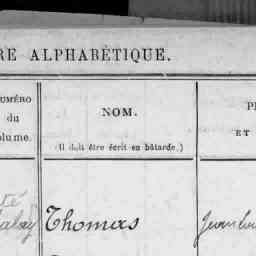 RE ALPHABÉTIQUE.
UMÉRO
du
olume.
NOM.
(Il doit être écrit en bâtarde.)
P
ET
té
Thomas